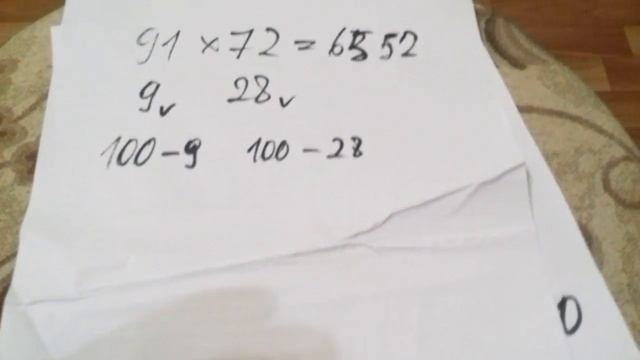 91 × 72 = 6552
9v 28v
100 - 9 100 - 28
0